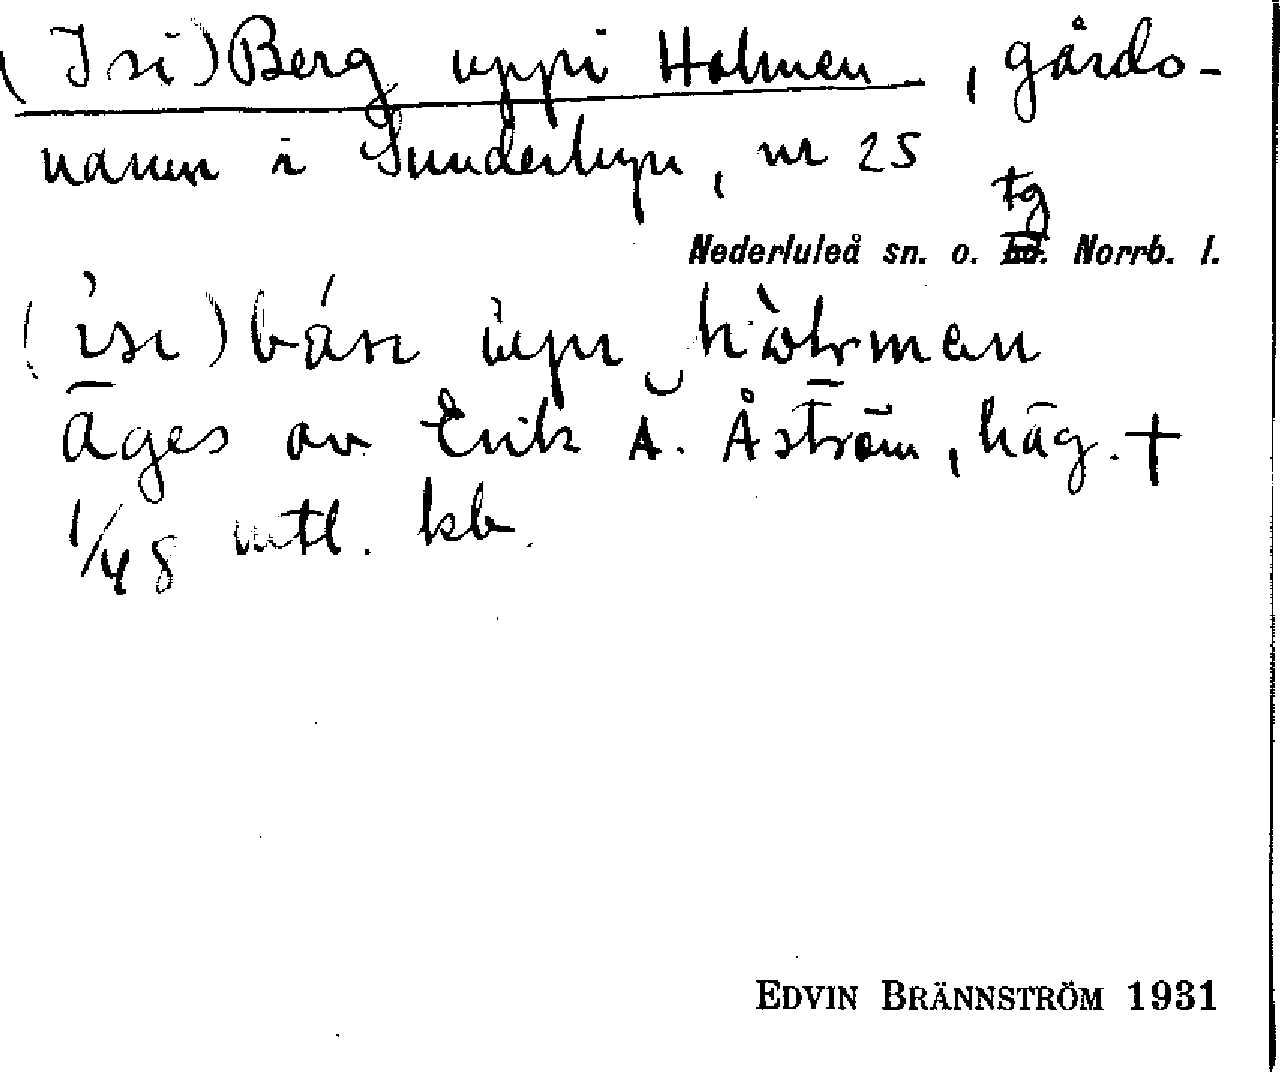 (Isi)Berg uppi Holmen, gårds-
namn i Sunderbyn, nr 25
tg
Nederluleå sn. o. hd. Norrb. l.
Äges av Erik A. Åström, häg. †
1/48 mtl. kb.
EDVIN BRÄNNSTRÖM 1931